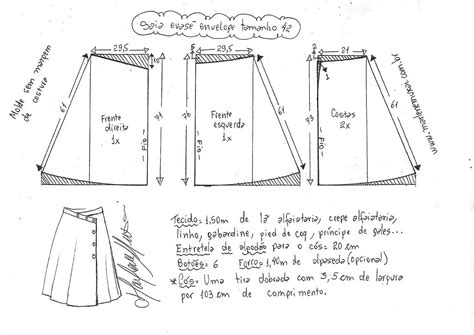 Saia evasê envelope tamanho 42
Molde sem margem
de costura
29,5
10
61
71
Frente
direita
1x
Fio
5
29,5
76
61
Frente
esquerda
1x
Fio
2
21
1
73
61
Costas
2x
Fio
www.marlenemukai.com.br
Tecido= 1.50m de lã alfaiataria, crepe alfaiataria,
linho, gabardine, pied de coq, príncipe de gales...
Entretela de algodão para o cós = 20 cm
Botões= 6 Forro= 1,40m de alpaseda (opcional)
*Cós= Uma tira dobrada com 3,5 cm de largura
por 103 cm de comprimento.